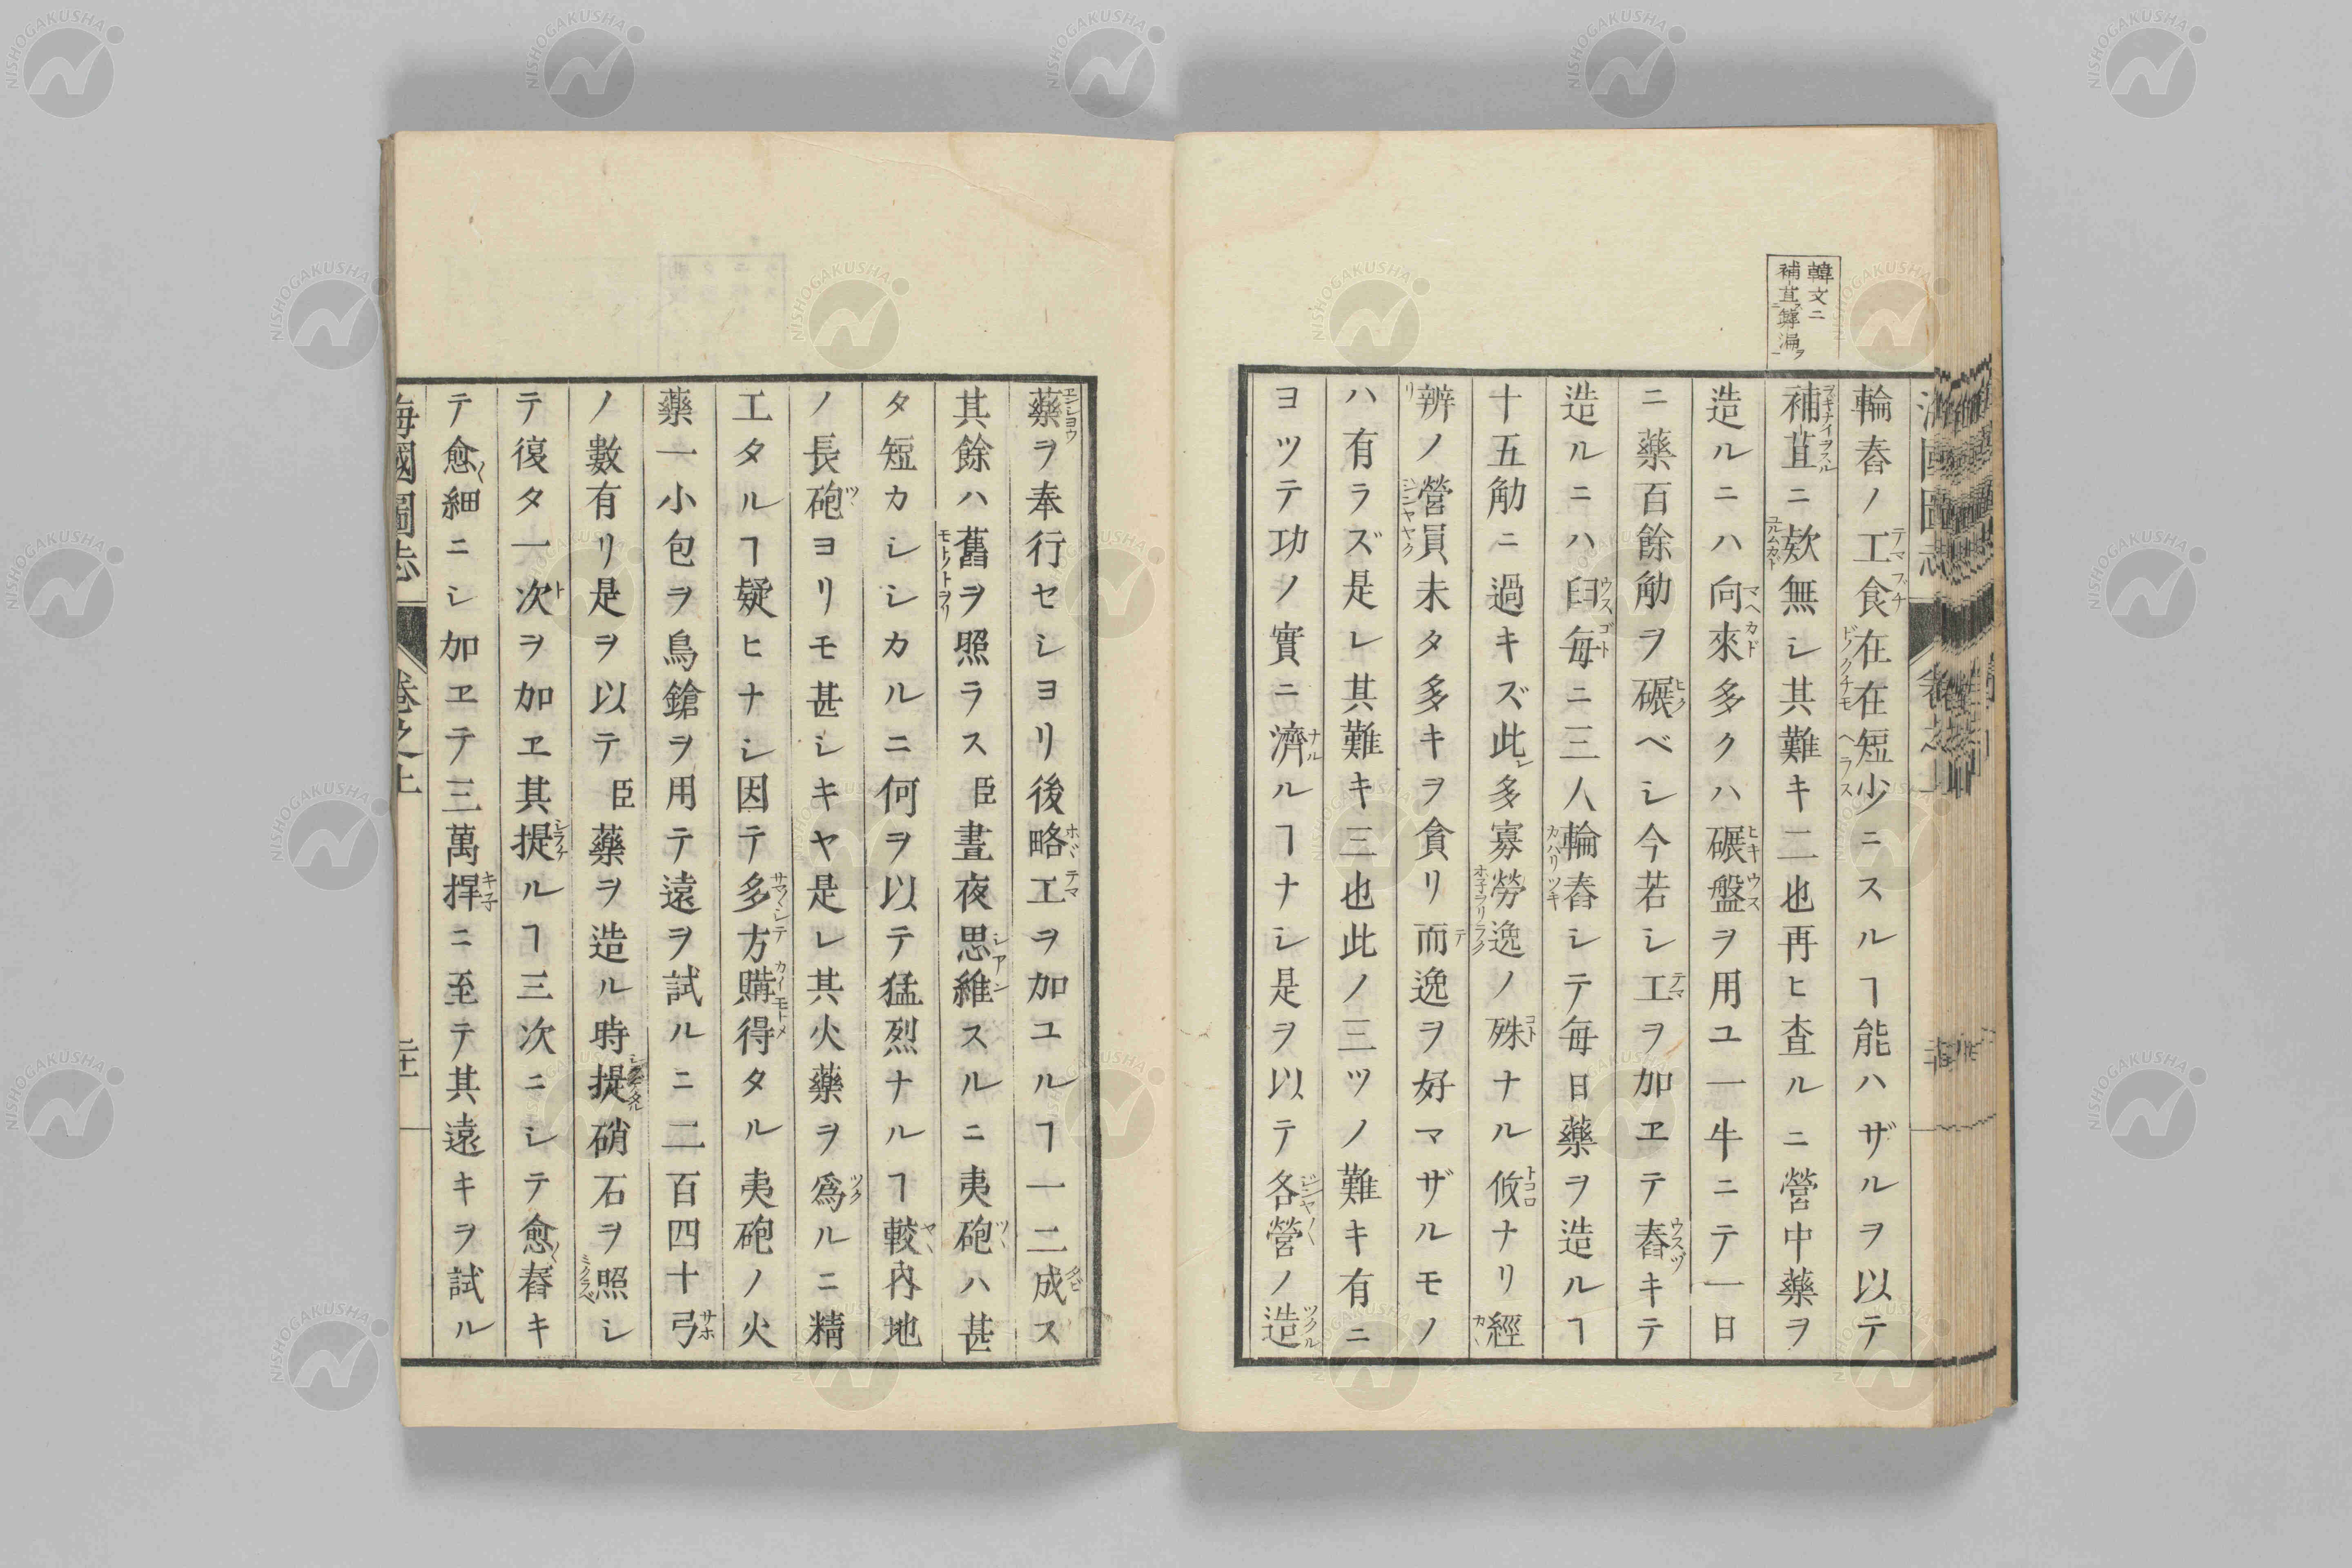 韓文ニ
補苴罅漏ヲ
輪舂ノ工食在在短少ニスルヿ能ハザルヲ以テ
補苴ニ欵無シ其難キ二也再ヒ査ルニ營中藥ヲ
造ルニハ向來多クハ碾盤ヲ用ユ一牛ニテ一日
ニ藥百餘觔ヲ碾ベシ今若シ工ヲ加ヱテ舂キテ
造ルニハ臼毎ニ三人輪舂シテ毎日藥ヲ造ルヿ
十五觔ニ過キズ此多寡勞逸ノ殊ナル攸ナリ經
辨ノ營員未タ多キヲ貪リ而逸ヲ好マザルモノ
ハ有ラズ是レ其難キ三也此ノ三ツノ難キ有ニ
ヨツテ功ノ實ニ濟ルヿナシ是ヲ以テ各營ノ造
藥ヲ奉行セシヨリ後略工ヲ加ユルヿ一二成ス
其餘ハ舊ヲ照ラス臣晝夜思維スルニ夷砲ハ甚
タ短カシシカルニ何ヲ以テ猛烈ナルヿ較內地
ノ長砲ヨリモ甚シキヤ是レ其火藥ヲ爲ルニ精
工タルヿ疑ヒナシ因テ多方購得タル夷砲ノ火
藥一小包ヲ鳥鎗ヲ用テ遠ヲ試ルニ二百四十弓
ノ數有リ是ヲ以テ臣藥ヲ造ル時提硝石ヲ照シ
テ復タ一次ヲ加ヱ其提ルヿ三次ニシテ愈舂キ
テ愈細ニシ加ヱテ三萬捍ニ至テ其遠キヲ試ル
海國圖志 卷之上